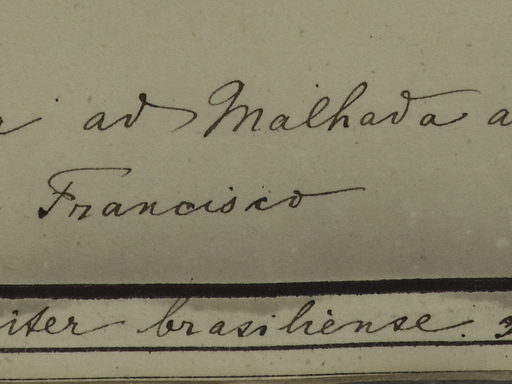 ad Malhada
Francisco
iter brasiliense.